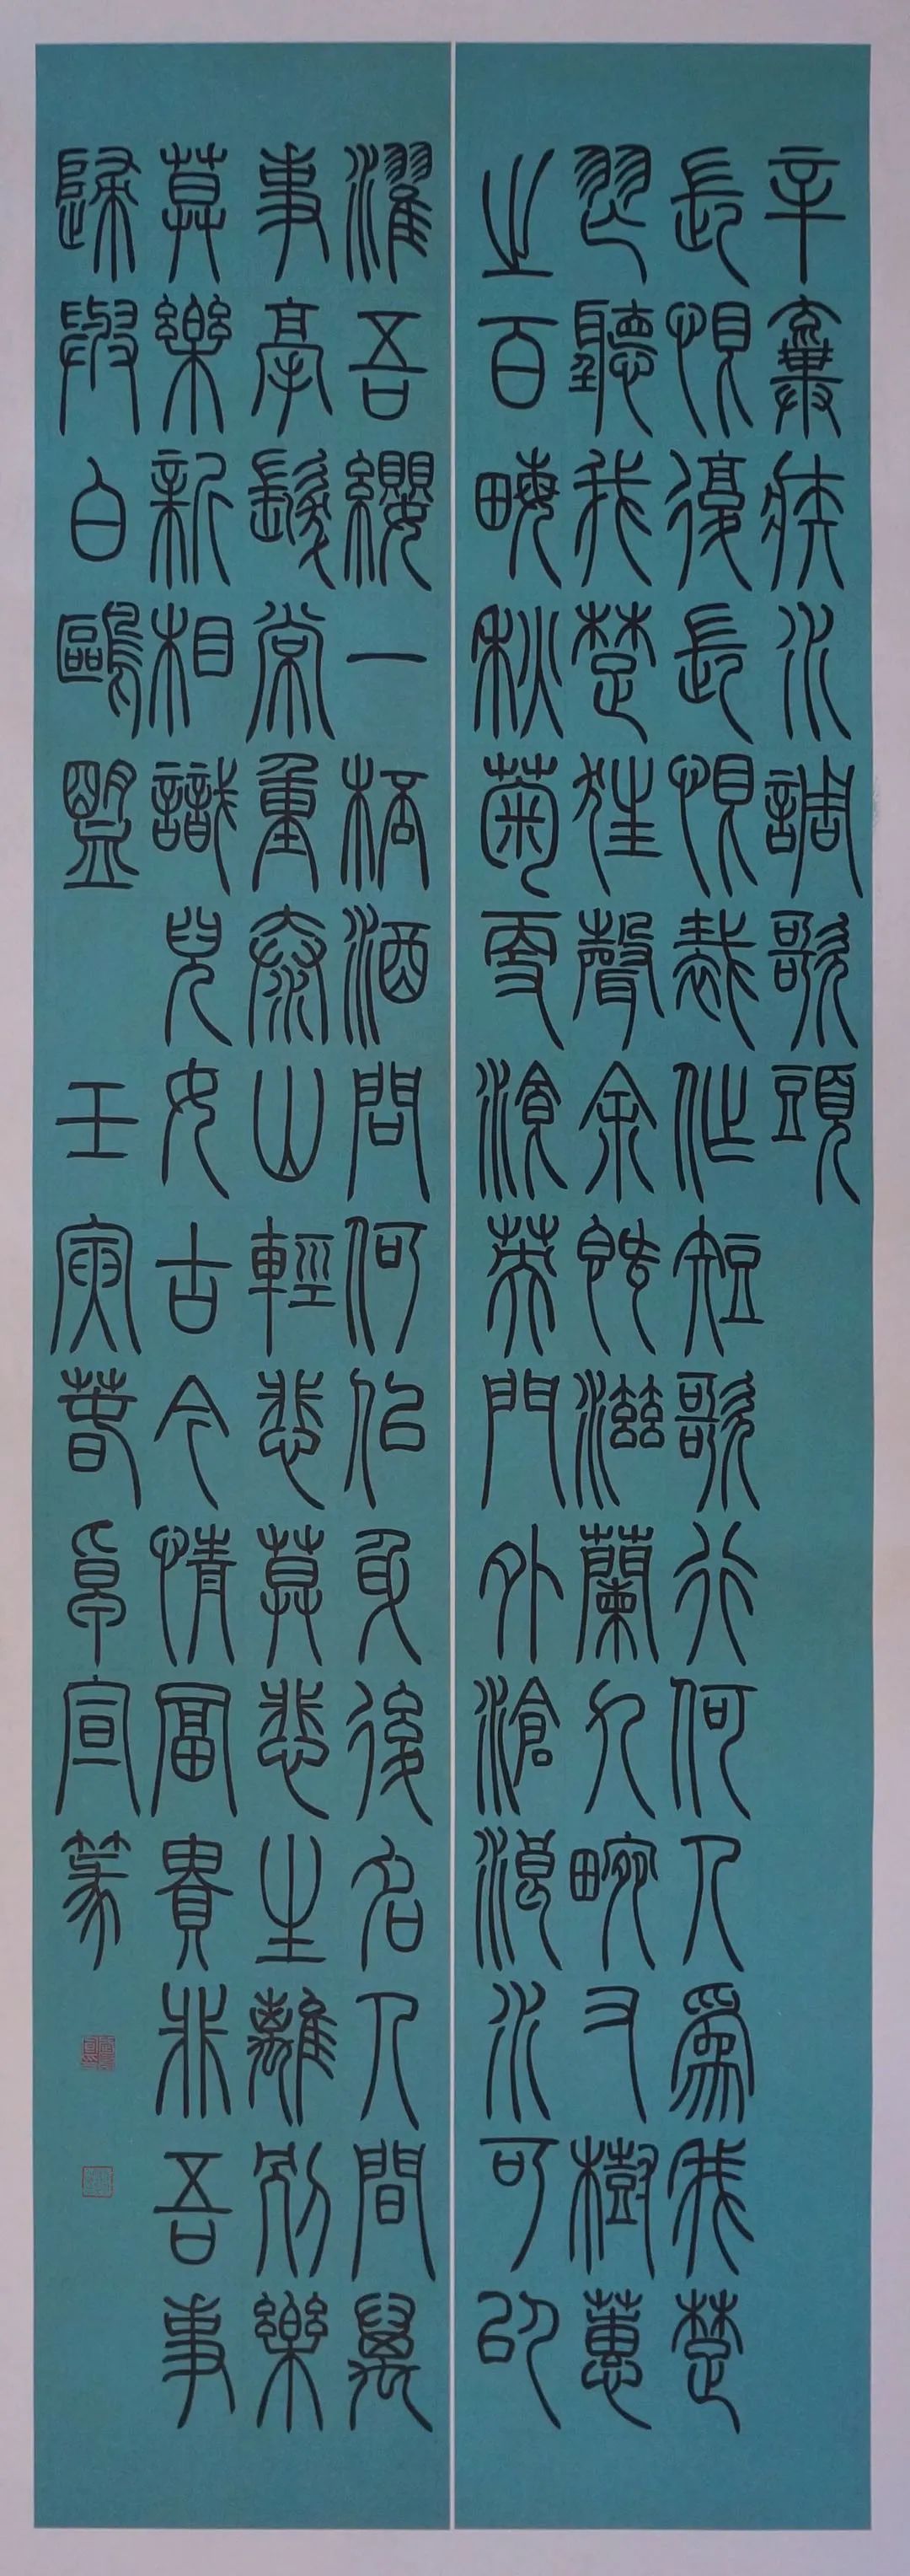 辛棄疾水調歌頭
長恨復長恨裁作短歌行何人爲我楚
舞聽我楚狂聲余既滋蘭九畹又樹蕙
之百畮秋菊更湌英門外滄浪水可以
濯吾纓一桮酒問何似身後名人間萬
事毫髮常重泰山輕悲莫悲生離別樂
莫樂新相識兒女古今情富貴非吾事
歸與白鷗盟 壬寅春卓宣篆